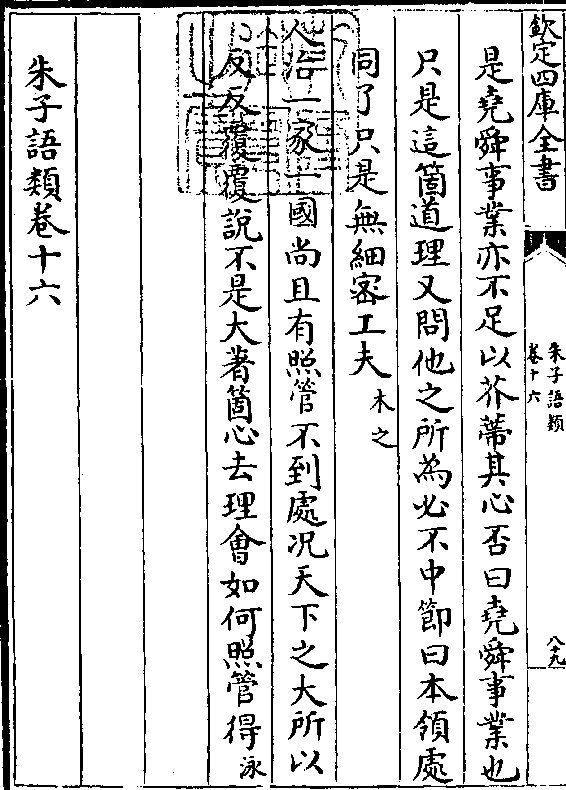 欽定四庫全書
朱子語類
卷十六
八十九
是堯舜事業亦不足以芥蔕其心否曰堯舜事業也
只是這箇道理又問他之所為必不中節曰本領處
同了只是無細密工夫木之
人治一家一國尚且有照管不到處况天下之大所以
反反覆覆說不是大著箇心去理會如何照管得泳
朱子語類卷十六